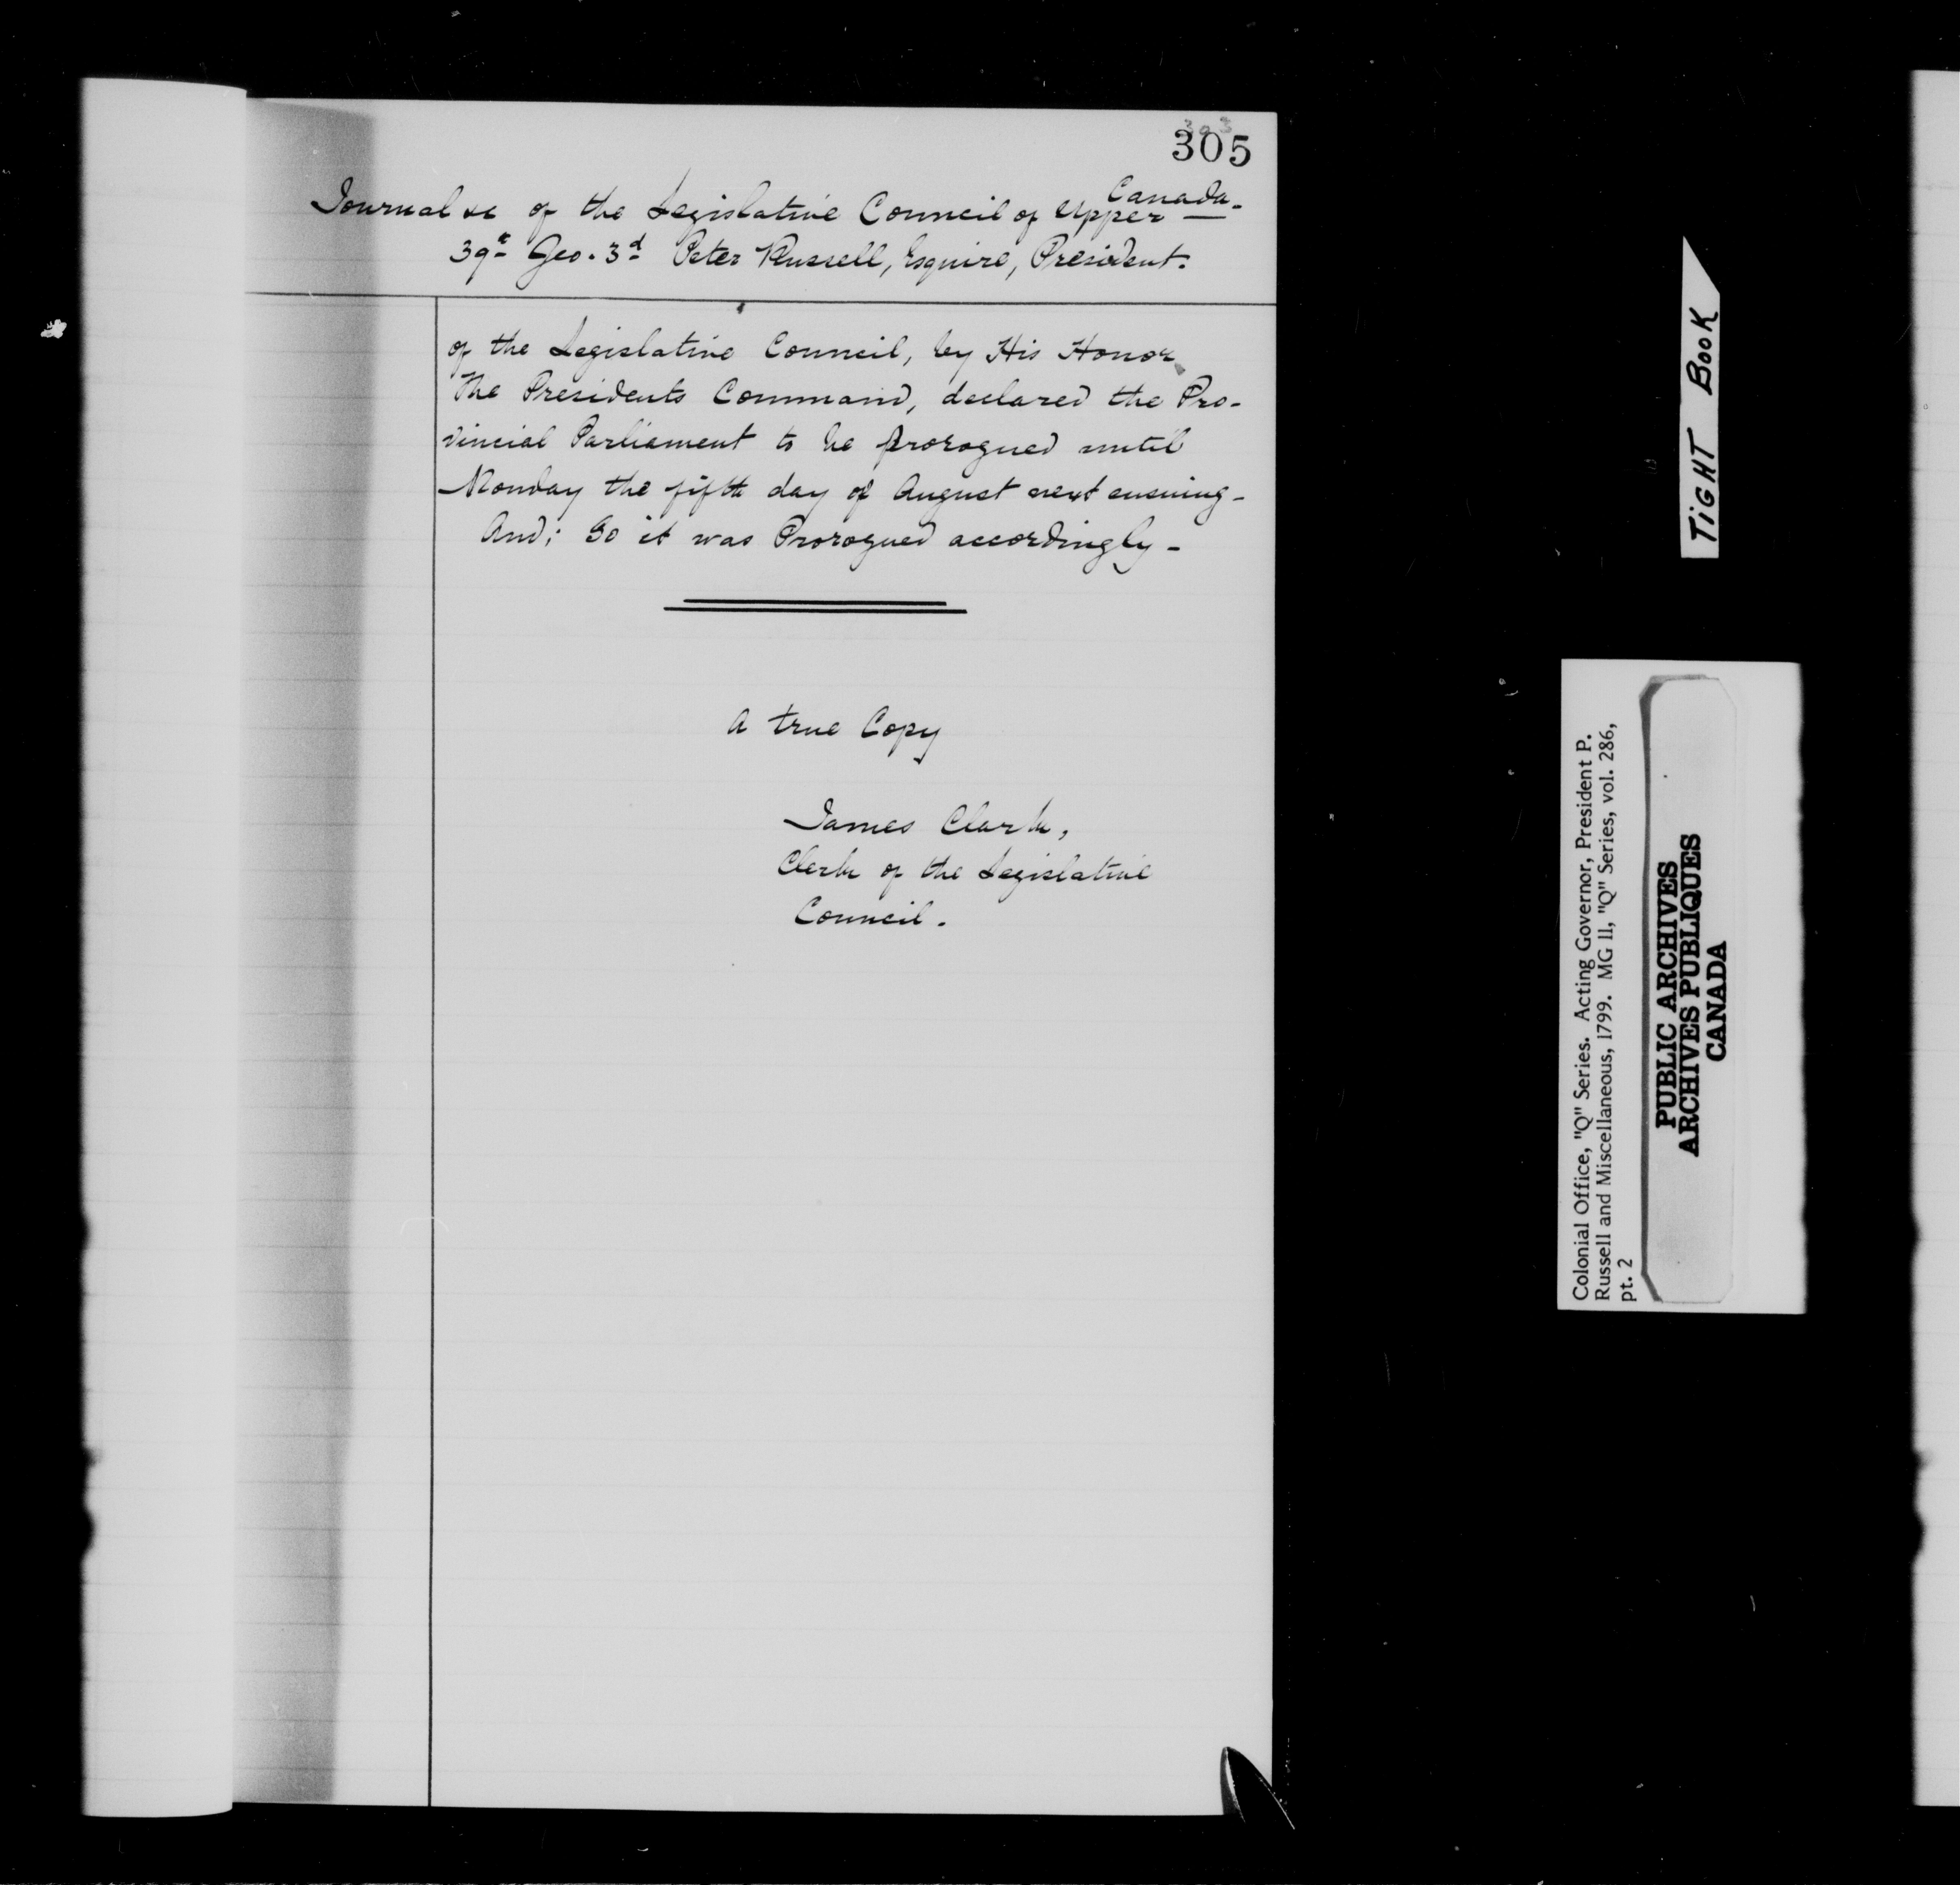 305
Journal &c of the Legislative Council of Upper Canada-
39th Geo. 3d Peter Russell, Esquire, President.
of the Legislative Council, by His Honor
The Presidents Command, declared the Pro-
vincial Parliament to be prorogued until
Monday the fifth day of August next ensuing-
And; So it was Prorogued accordingly-
A true Copy
James Clark,
Clerk of the Legislative
Council.
TIGHT BOOK
Colonial Office, "Q" Series. Acting Governor, President P.
Russell and Miscellaneous, 1799. MG 11, "Q" Series, vol. 286,
pt. 2
PUBLIC ARCHIVES
ARCHIVES PUBLIQUES
CANADA